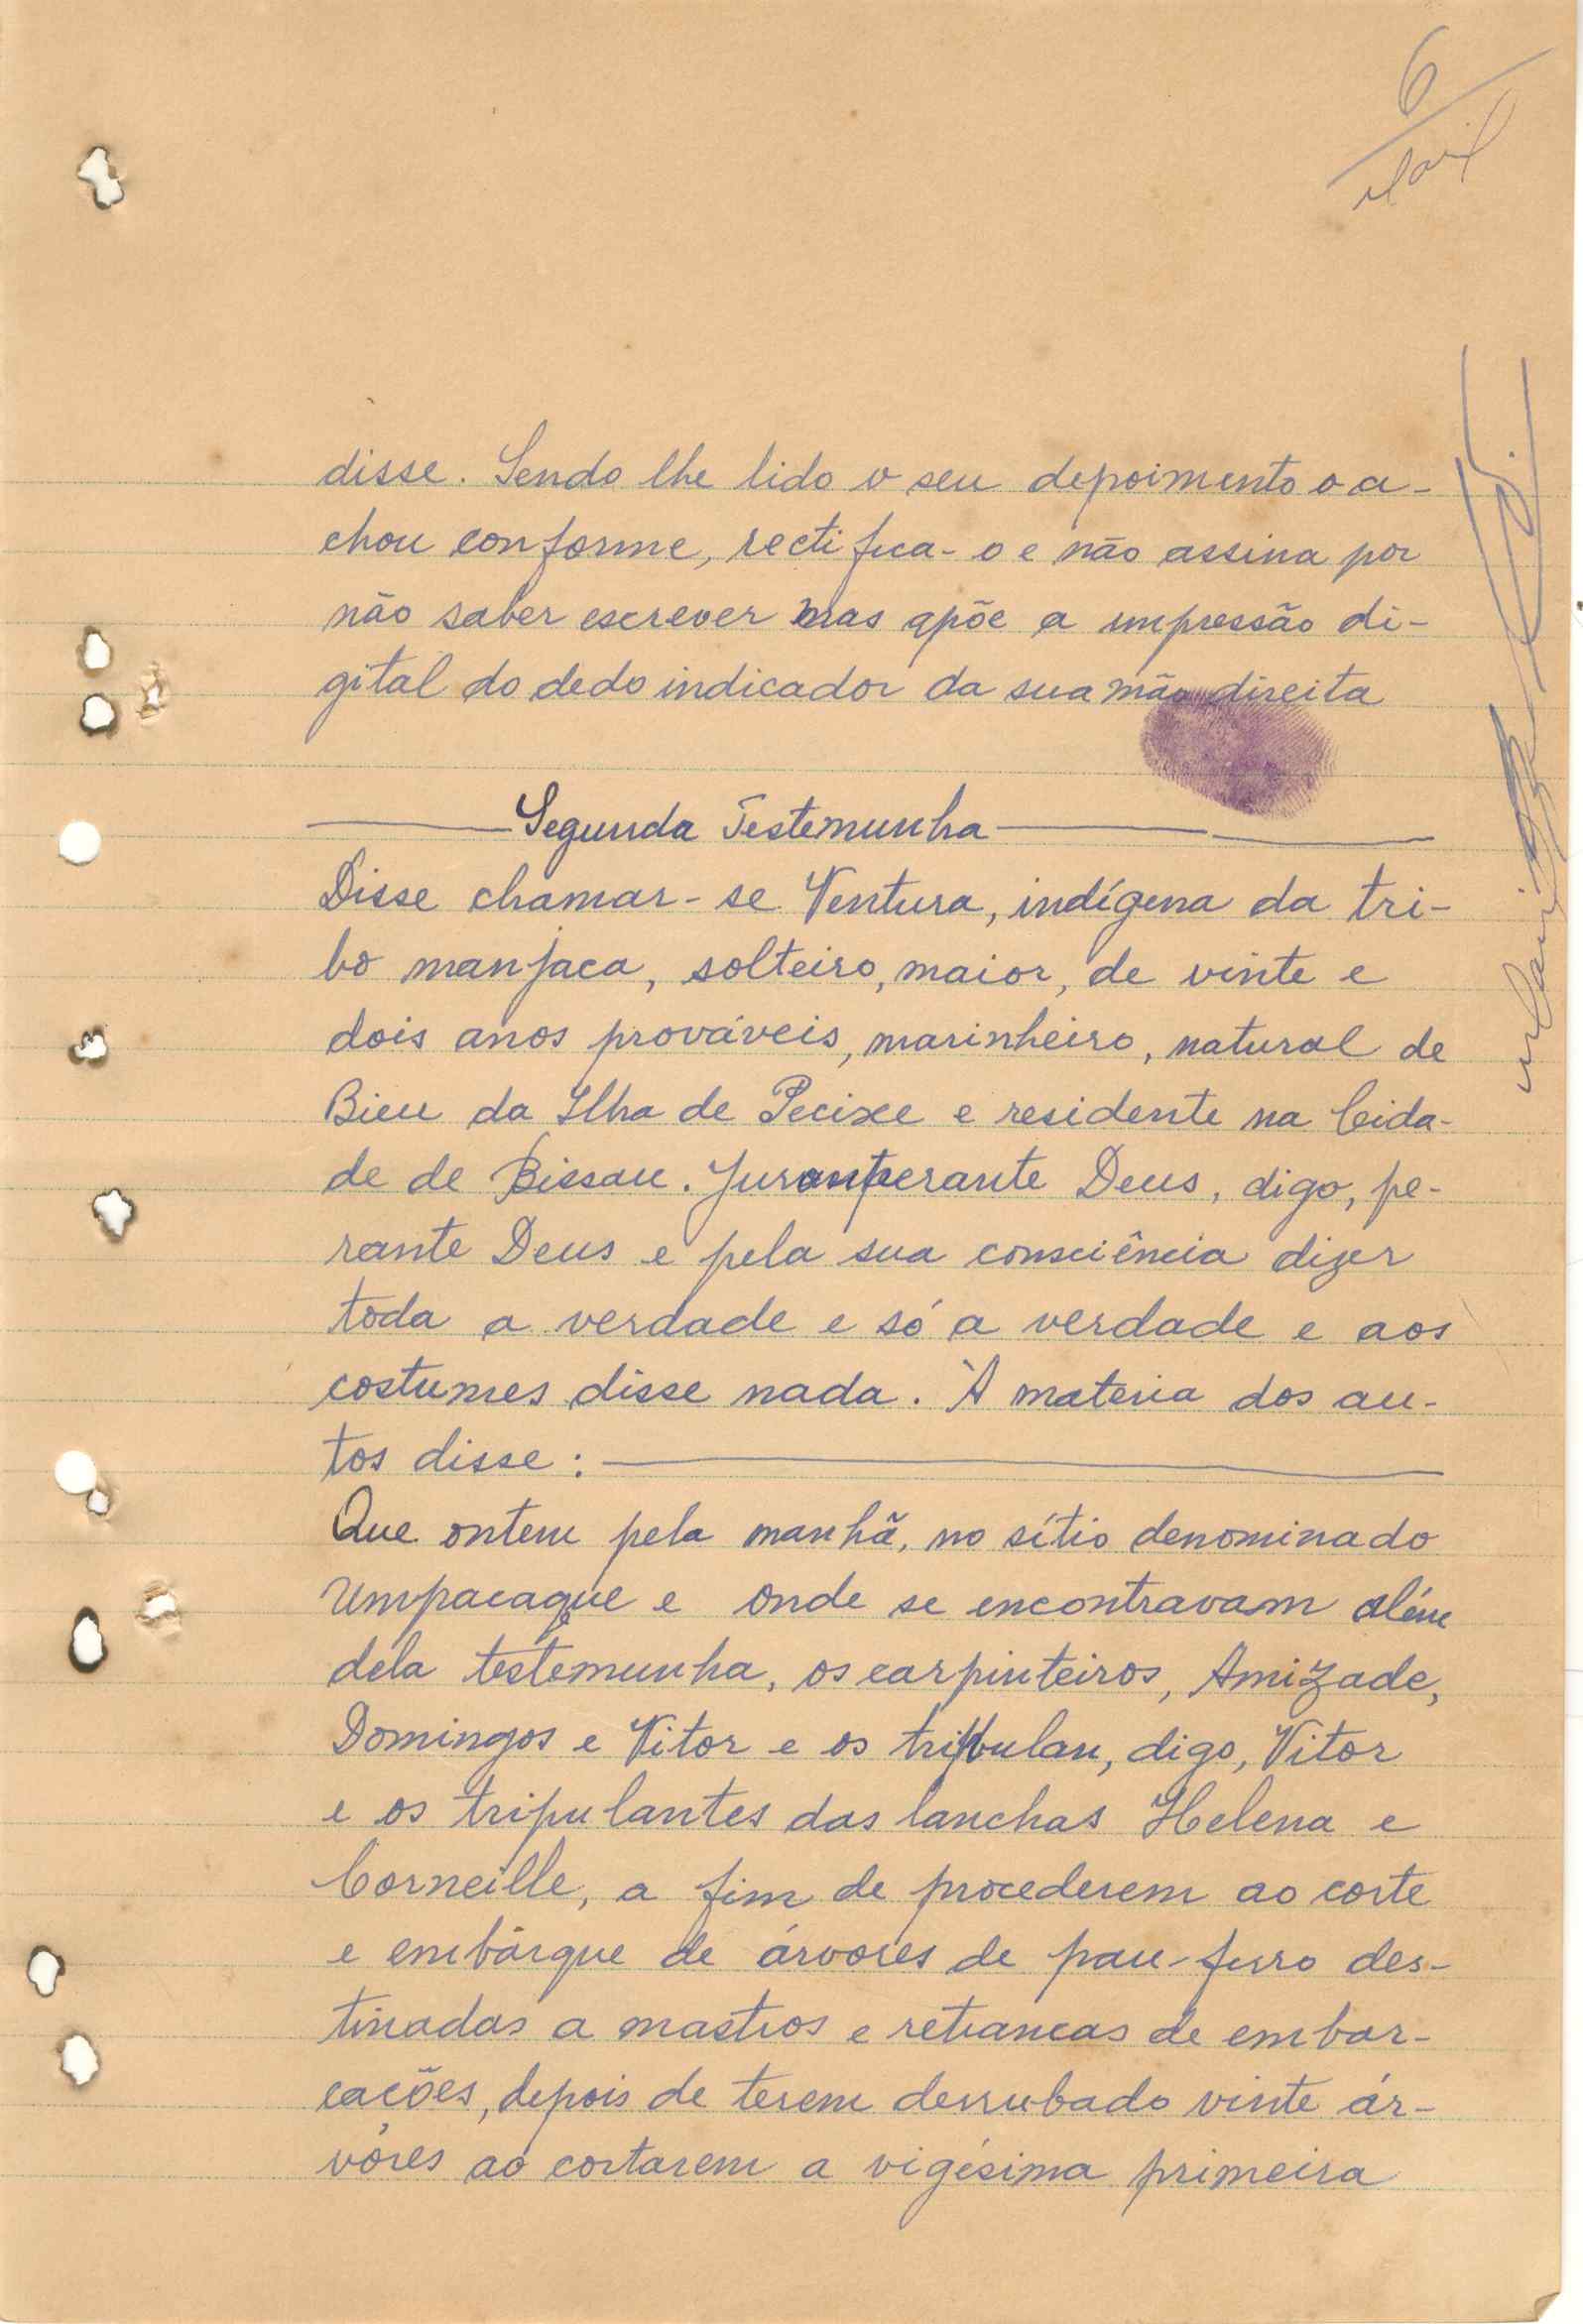 6
disse. Sendo lhe lido o seu depoimento o a-
chou conforme, rectifica-o e não assina por
não saber escrever mas apõe a impressão di-
gital do dedo indicador da sua mão direita
Segunda Testemunha
Disse chamar-se Ventura, indígena da tri-
bo manjaca, solteiro, maior, de vinte e
dois anos prováveis, marinheiro, natural de
Bieu da Ilha de Pecixe e residente na Cida-
de de Bissau. Jurou perante Deus, digo, pe-
rante Deus e pela sua consciência dizer
toda a verdade e só a verdade e aos
costumes disse nada. À materia dos au-
tos disse:
Que ontem pela manhã, no sítio denominado
Umpacaque e onde se encontravam além
dela testemunha, os carpinteiros, Amizade,
Domingos e Vitor e os tripulan, digo, Vitor
e os tripulantes das lanchas Helena e
Corneille, a fim de procederem ao corte
e embárque de árvores de pau-ferro des-
tinadas a mastros e retrancas de embar-
cações, depois de terem derrubado vinte ár-
vóres ao cortarem a vigésima primeira